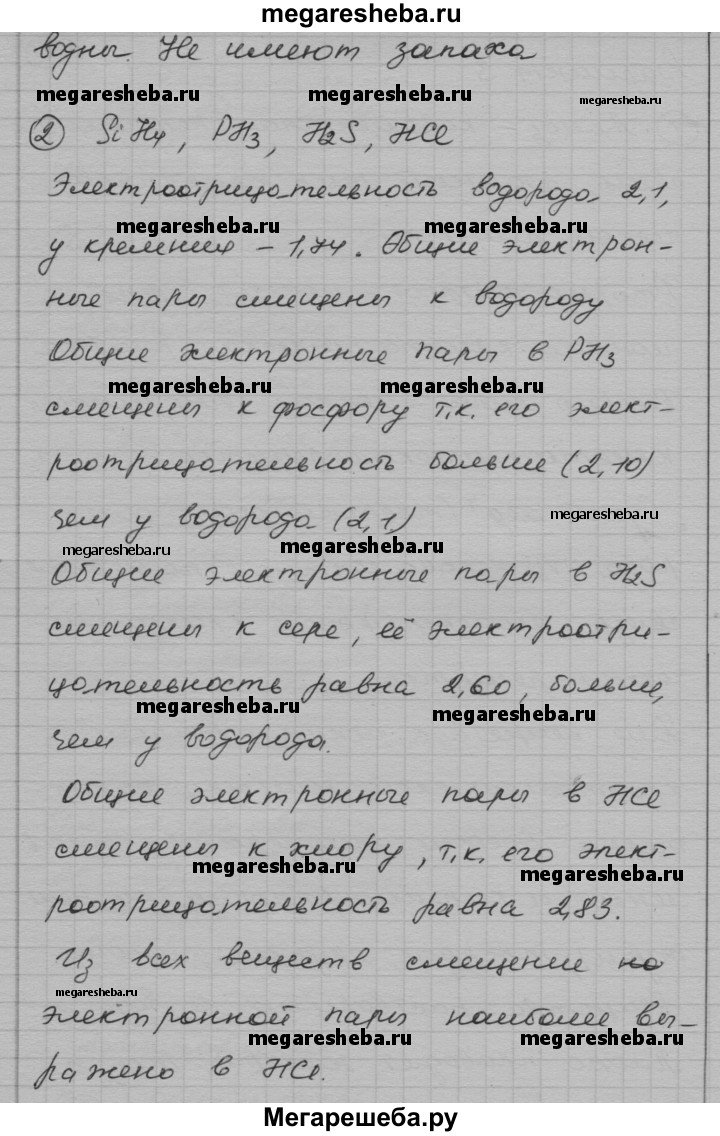 megaresheba.ru
водны. Не имеют запаха
megaresheba.ru megaresheba.ru megaresheba.ru
② SiH4, PH3, H2S, HCl
Электроотрицательность водорода 2,1,
megaresheba.ru megaresheba.ru
у кремния - 1,74. Общие электрон-
ные пары смещены к водороду
Общие электронные пары в PH3
megaresheba.ru megaresheba.ru
смещены к фосфору т.к. его элект-
роотрицательность больше (2,10)
чем у водорода (2,1)
megaresheba.ru
megaresheba.ru megaresheba.ru
Общие электронные пары в H2S
смещены к сере, её электроотри-
цательность равна 2,60, больше,
megaresheba.ru megaresheba.ru
чем у водорода.
Общие электронные пары в HCl
смещены к хлору, т.к. его элект-
megaresheba.ru megaresheba.ru
роотрицательность равна 2,83.
Из всех веществ смещение но
megaresheba.ru
электронной пары наиболее вы-
megaresheba.ru megaresheba.ru
ражено в HCl.
Мегарешеба.ру